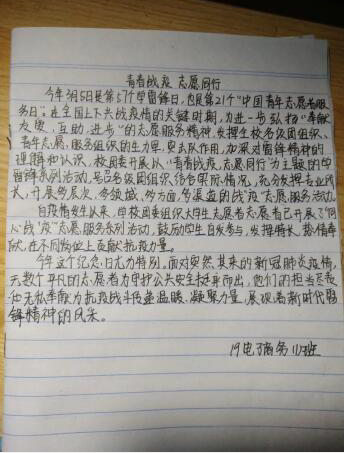 青春战疫 志愿同行
今年3月5日是第57个学雷锋日,也是第21个"中国青年志愿者服
务日"。在全国上下共战疫情的关键时期,为进一步弘扬"奉献
友爱,互助,进步"的志愿服务精神,发挥生校各级团组织、
青年志愿服务组织的生力军,突击队作用,加深对雷锋精神的
理解和认识,校团委开展以"青春战疫,志愿同行"为主题的学
雷锋系列活动,号召各级团组织结合实际情况,充分发挥专业特
长,开展多层次,多领域,多方面,多渠道的战"疫"志愿服务活动。
自疫情发生以来,学校团委组织大学生志愿者志愿者已开展了"同
心"战"疫"志愿服务系列活动,鼓励师生自发参与,发挥特长,热情奉
献,在不同岗位上贡献抗疫力量。
今年这个纪念日尤为特别。面对突然其来的新冠肺炎疫情,
无数个平凡的志愿者为守护公共安全挺身而出,他们的担当尽责
和无私奉献为抗疫战斗传递温暖、凝聚力量,展现着新时代雷
锋精神的风采。
19电子商务 班